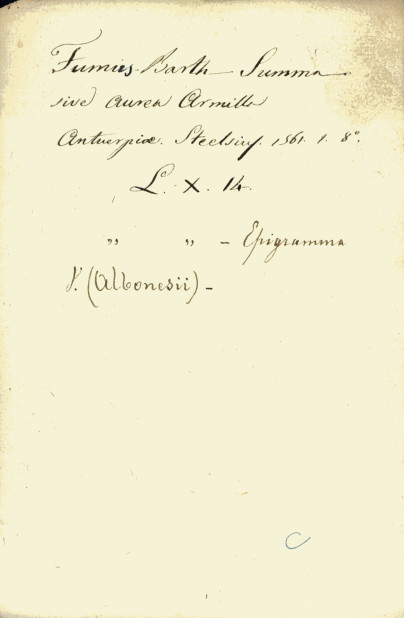 Fumus Barth Summa
sive aurea Armilla
Antuerpiæ. Steelsius. 1561. 1. 8°.
L. X. 14.
„ „ – Epigramma
V. (Albonesii) –
C